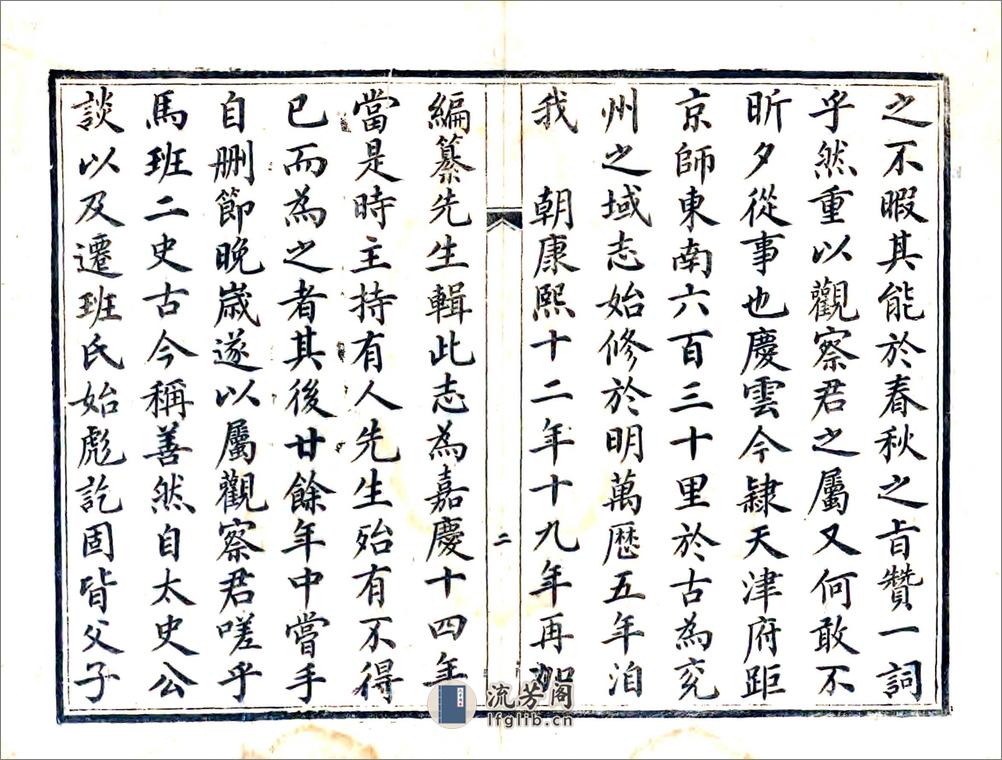 之不暇其能於春秋之旨贊一詞
乎然重以觀察君之屬又何敢不
昕夕從事也慶雲今隸天津府距
京師東南六百三十里於古為兖
州之域志始修於明萬歷五年洎
我 朝康熙十二年十九年再加
二
編纂先生輯此志為嘉慶十四年
當是時主持有人先生殆有不得
已而為之者其後廿餘年中嘗手
自刪節晚歲遂以屬觀察君嗟乎
馬班二史古今稱善然自太史公
談以及遷班氏始彪訖固皆父子
流芳閣
lfglib.cn